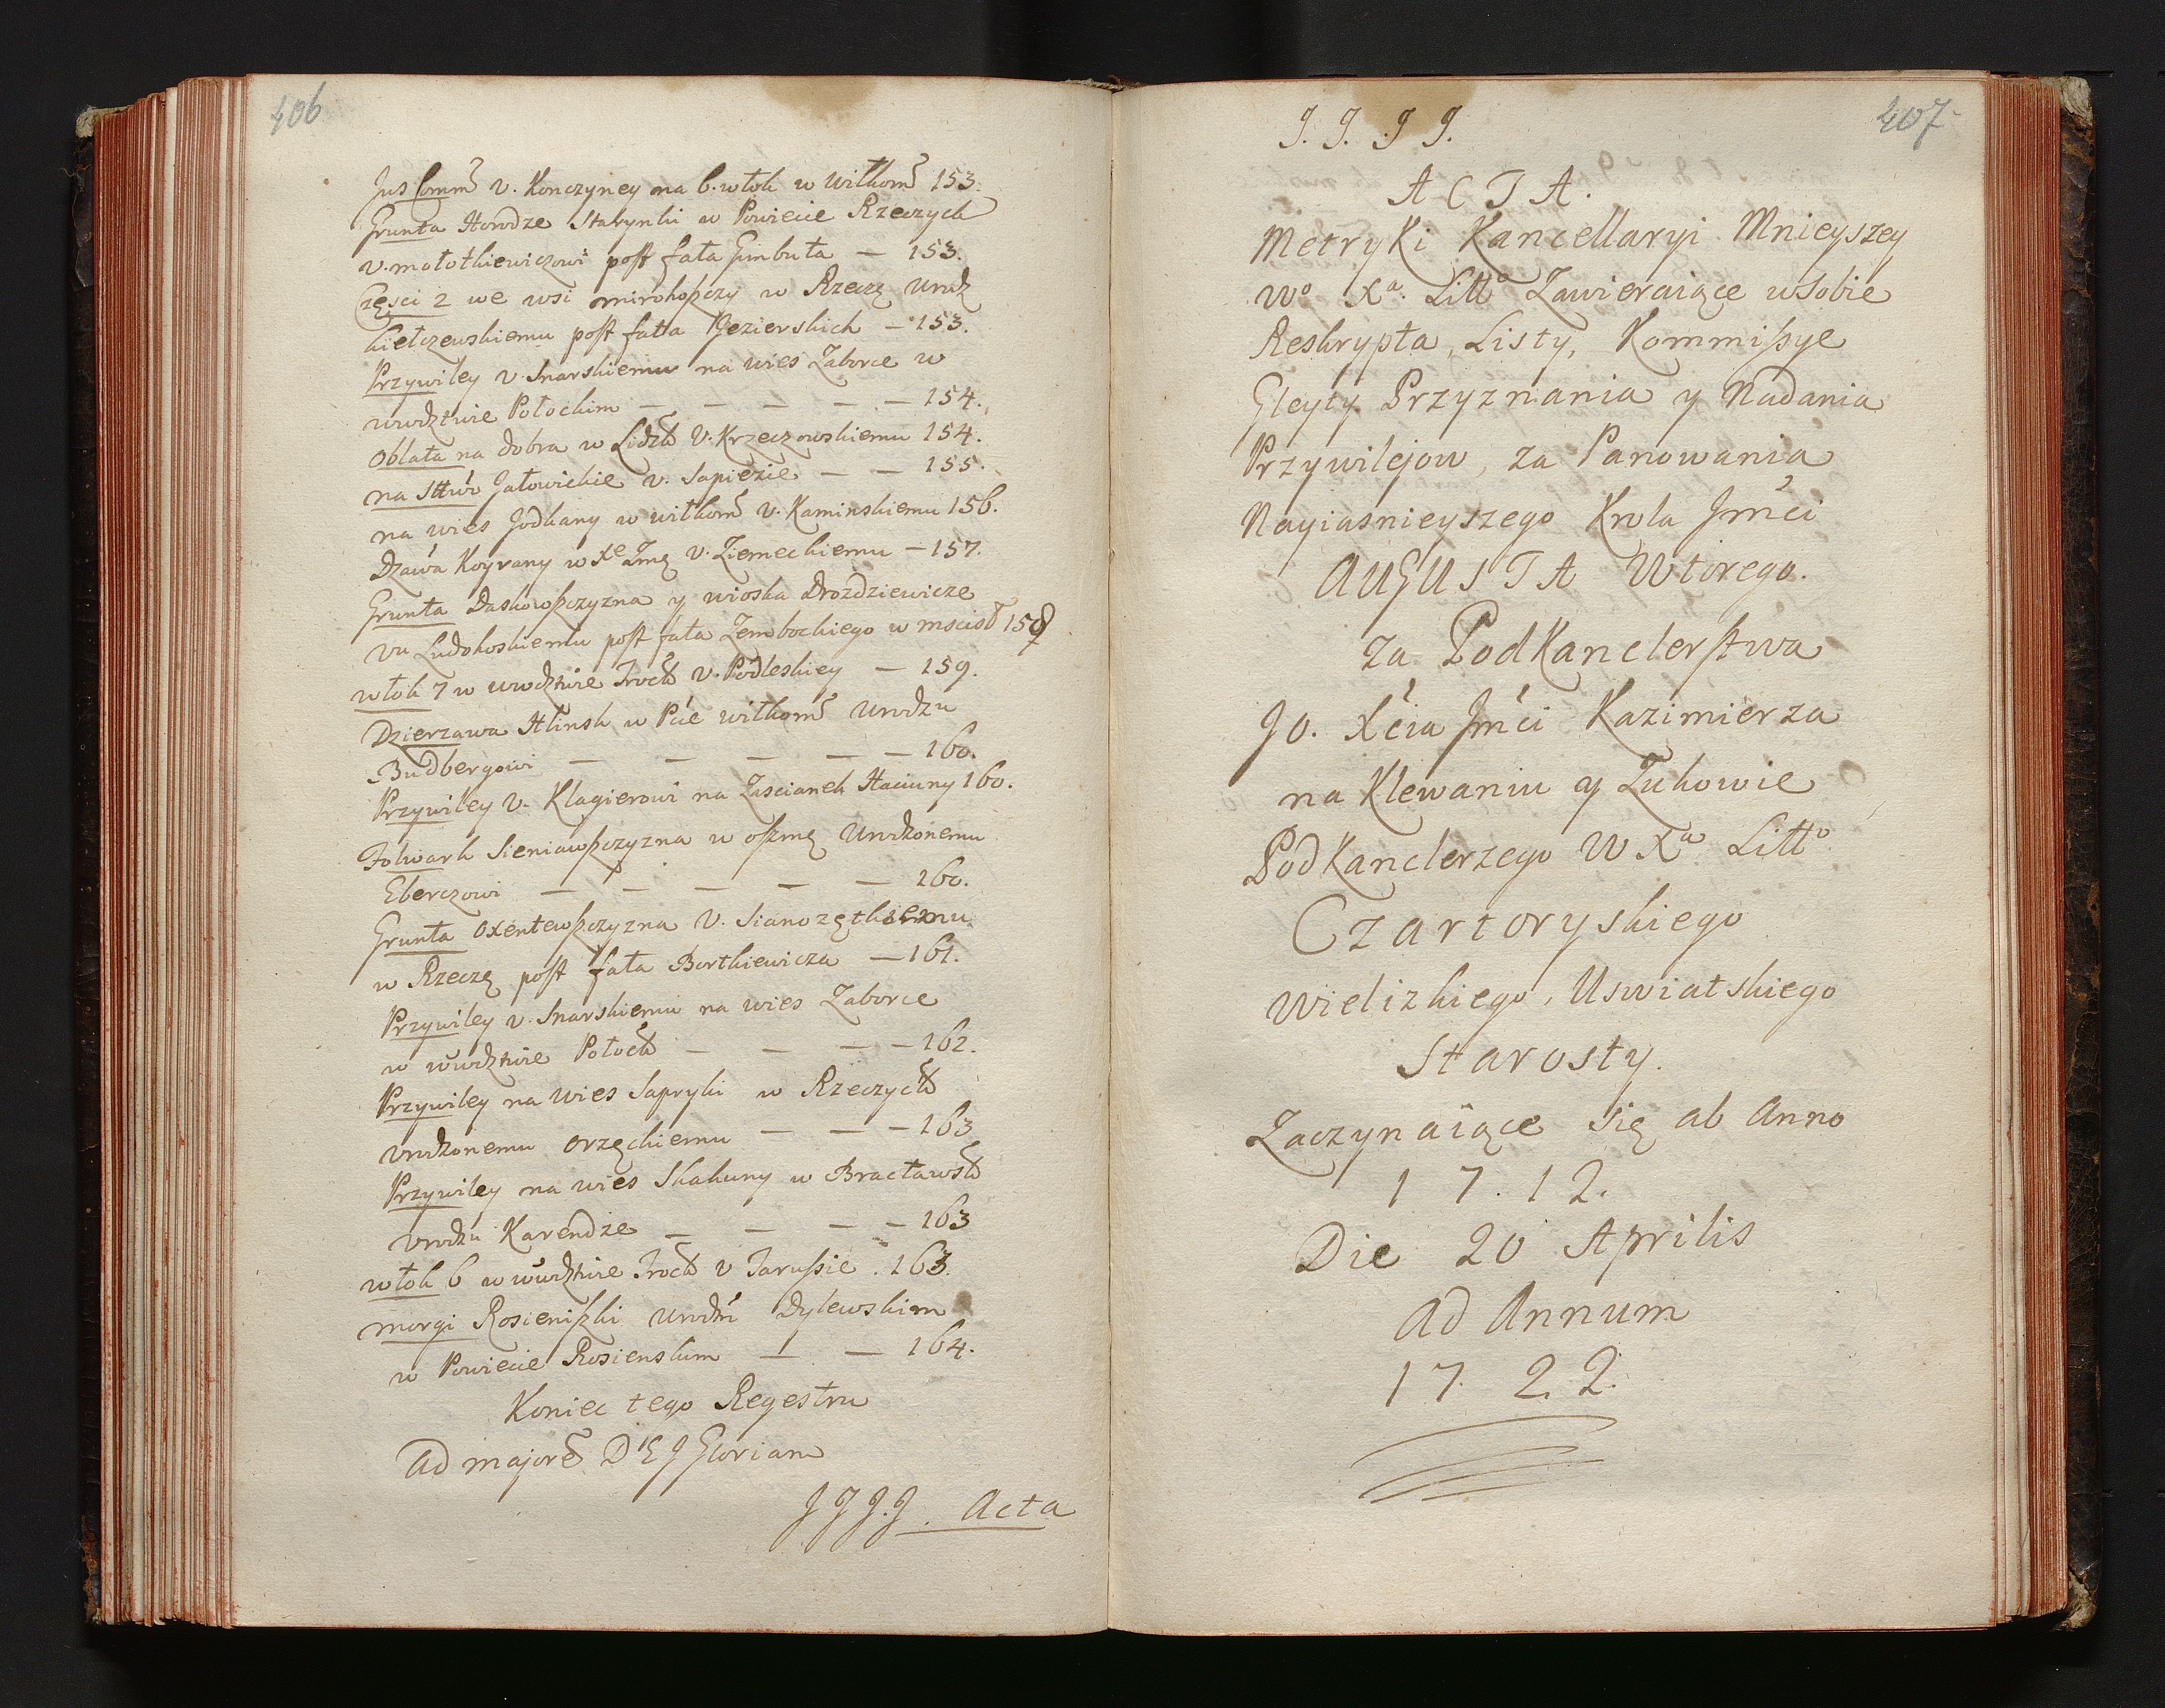 406
Jus Comm̃ v. Konczyney na 6. włok w Wilkom̃ 153.
Grunta Horodze Starynki w Powiecie Rzeczych
v. mołotkiewiczowi post fata Gimbuta — 153.
Częsci 2 we wsi mirohoszczy w Rzeczę Urodz
kiełczewskiemu post fata Jezierskich — 153.
Przywiley v. Snarskiemu na wies Zaborce w
wwdztwie Połockim — — — — — 154.
Oblata na dobra w Lidzk V. Krzeczowskiemu 154.
na Sttwo Jałowickie v. Sapiezie — — 155.
na wies Jodkany w wilkom̃ v. Kaminskiemu 156.
Dzawa Koyrany w Xe Zmę v. Ziemeckiemu — 157.
Grunta Daskowszczyzna y wioska Drozdziewicze
vu Ludohoskiemu post fata Zembockiego w mscisł 158
włok 7 w wwdztwie Trock v. Podleskiey — 159.
Dzierzawa Hlinsk w Pcie wilkom̃ Urodzu
Budbergowi — — — — — 160.
Przywiley v. Klagierowi na Zascianek Staciuny 160.
Folwark Sieniawszczyzna w oszmę Urodzonemu
Eberczowi — — — — — 160.
Grunta Oxentewszczyzna V. Sianozętskiemu
w Rzeczę post fata Bortkiewicza — 161.
Przywiley v. Snarskiemu na wies Zaborce
w wwdztwie Połock — — — — 162.
Przywiley na wies Sapryki w Rzeczyck
Urodzonemu Orzęckiemu — — — 163
Przywiley na wies Skakuny w Bracławsk
Urodzu Karendze — — — — 163
włok 6 w wwdztwie Trock v Tarussie . 163.
morgi Rosieniszki Urodzm Dylewskim
w Powiecie Rosienskim — — 164.
Koniec tego Regestru
Ad majorẽ DEJ Gloriam
J J J. J . Acta
407
J. J. J J.
ACTA.
Metryki Kancellaryi Mnieyszey
Wo Xa. Litto Zawieraiące w Sobie
Reskrypta, Listy, Kommissye
Gleyty Przyznania y Nadania
Przywilejow, za Panowania
Nayiasnieyszego Krola Jmći
AUGUSTA Wtorego.
za PodKanclerstwa
JO. Xćia Jmći Kazimierza
na Klewaniu y Zukowie
PodKanclerzego W Xa Litto
Czartoryskiego
Wielizkiego, Uswiatskiego
Starosty.
Zaczynaiące się ab Anno
1 7. 1 2.
Die 20 Aprilis
Ad Annum
1 7. 2. 2.